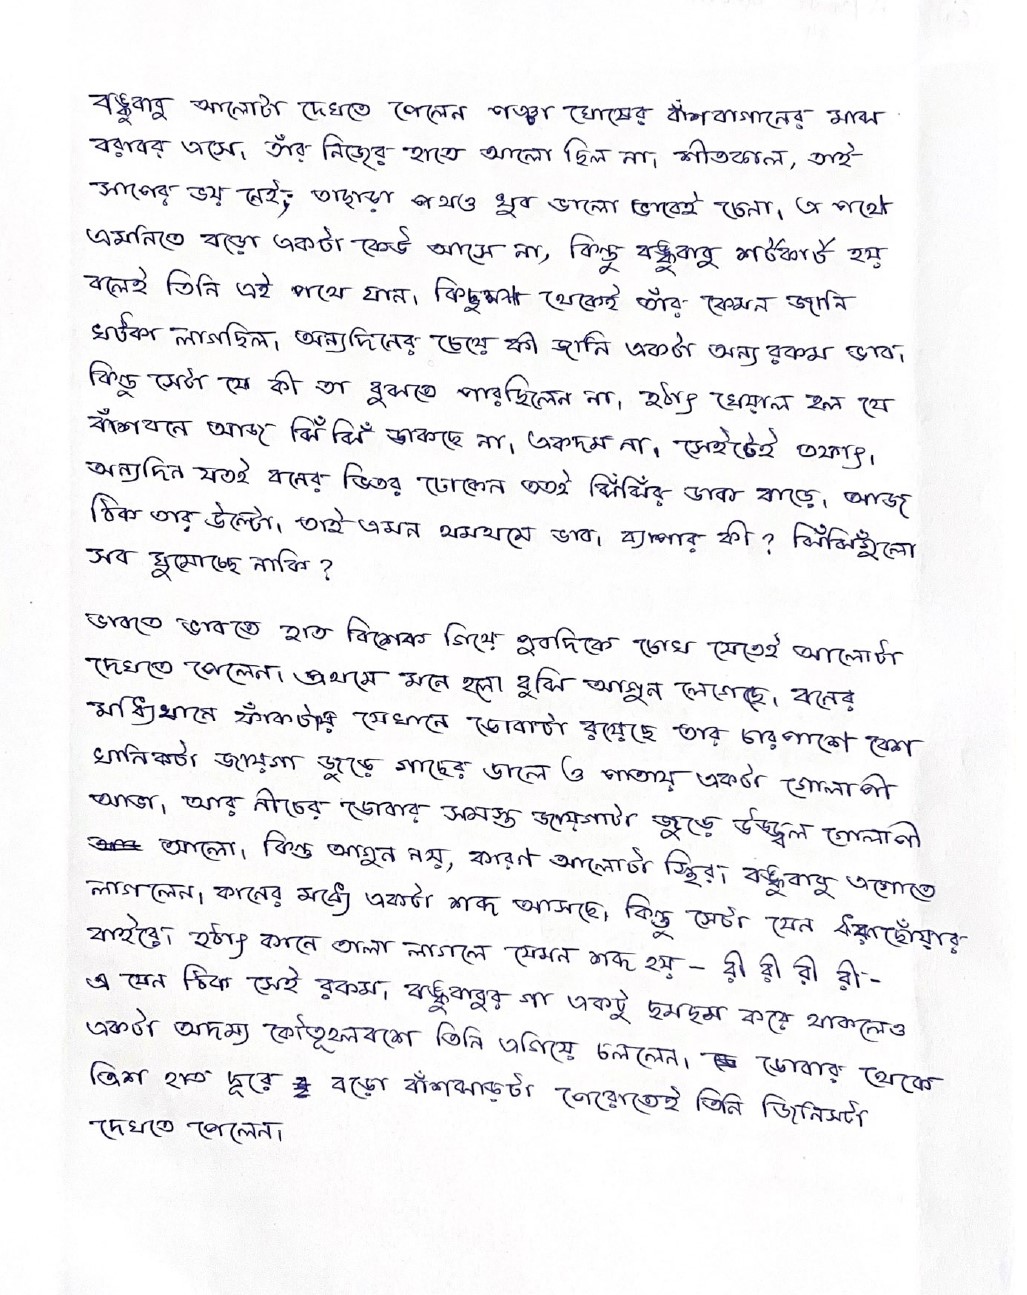 বঙ্কুবাবু আলোটা দেখতে পেলেন পঞ্চা ঘোষের বাঁশবাগানের মাঝ
বরাবর এসে। তাঁর নিজের হাতে আলো ছিল না। শীতকাল, তাই
সাপের ভয় নেই; তাছাড়া পথও খুব ভালো ভাবেই চেনা। এ পথে
এমনিতে বড়ো একটা কেউ আসে না, কিন্তু বঙ্কুবাবু শর্টকার্ট হয়
বলেই তিনি এই পথে যান। কিছুক্ষণ থেকেই তাঁর কেমন জানি
খটকা লাগছিল। অন্যদিনের চেয়ে কী জানি একটা অন্য রকম ভাব।
কিন্তু সেটা যে কী তা বুঝতে পারছিলেন না। হঠাৎ খেয়াল হল যে
বাঁশবনে আজ ঝিঁ ঝিঁ ডাকছে না। একদম না। সেইটেই তফাৎ।
অন্যদিন যতই বনের ভিতর ঢোকেন ততই ঝিঁঝিঁর ডাক বাড়ে। আজ
ঠিক তার উল্টো। তাই এমন থমথমে ভাব। ব্যাপার কী? ঝিঁঝিঁগুলো
সব ঘুমোচ্ছে নাকি?
ভাবতে ভাবতে হাত বিশেক গিয়ে পুবদিকে চোখ যেতেই আলোটা
দেখতে পেলেন। প্রথমে মনে হলো বুঝি আগুন লেগেছে। বনের
মধ্যিখানে ফাঁকটায় যেখানে ডোবাটা রয়েছে তার চারপাশে বেশ
খানিকটা জায়গা জুড়ে গাছের ডালে ও পাতায় একটা গোলাপী
আভা। আর নীচের ডোবার সমস্ত জায়গাটা জুড়ে উজ্জ্বল গোলাপী
আলো। কিন্তু আগুন নয়, কারণ আলোটা স্থির। বঙ্কুবাবু এগোতে
লাগলেন। কানের মধ্যে একটা শব্দ আসছে। কিন্তু সেটা যেন ধরাছোঁয়ার
বাইরে। হঠাৎ কানে তালা লাগলে যেমন শব্দ হয় – রী রী রী রী –
এ যেন ঠিক সেই রকম। বঙ্কুবাবুর গা একটু ছমছম করে থাকলেও
একটা অদম্য কৌতূহলবশে তিনি এগিয়ে চললেন। ডোবার থেকে
ত্রিশ হাত দূরে বড়ো বাঁশঝাড়টা পেরোতেই তিনি জিনিসটা
দেখতে পেলেন।